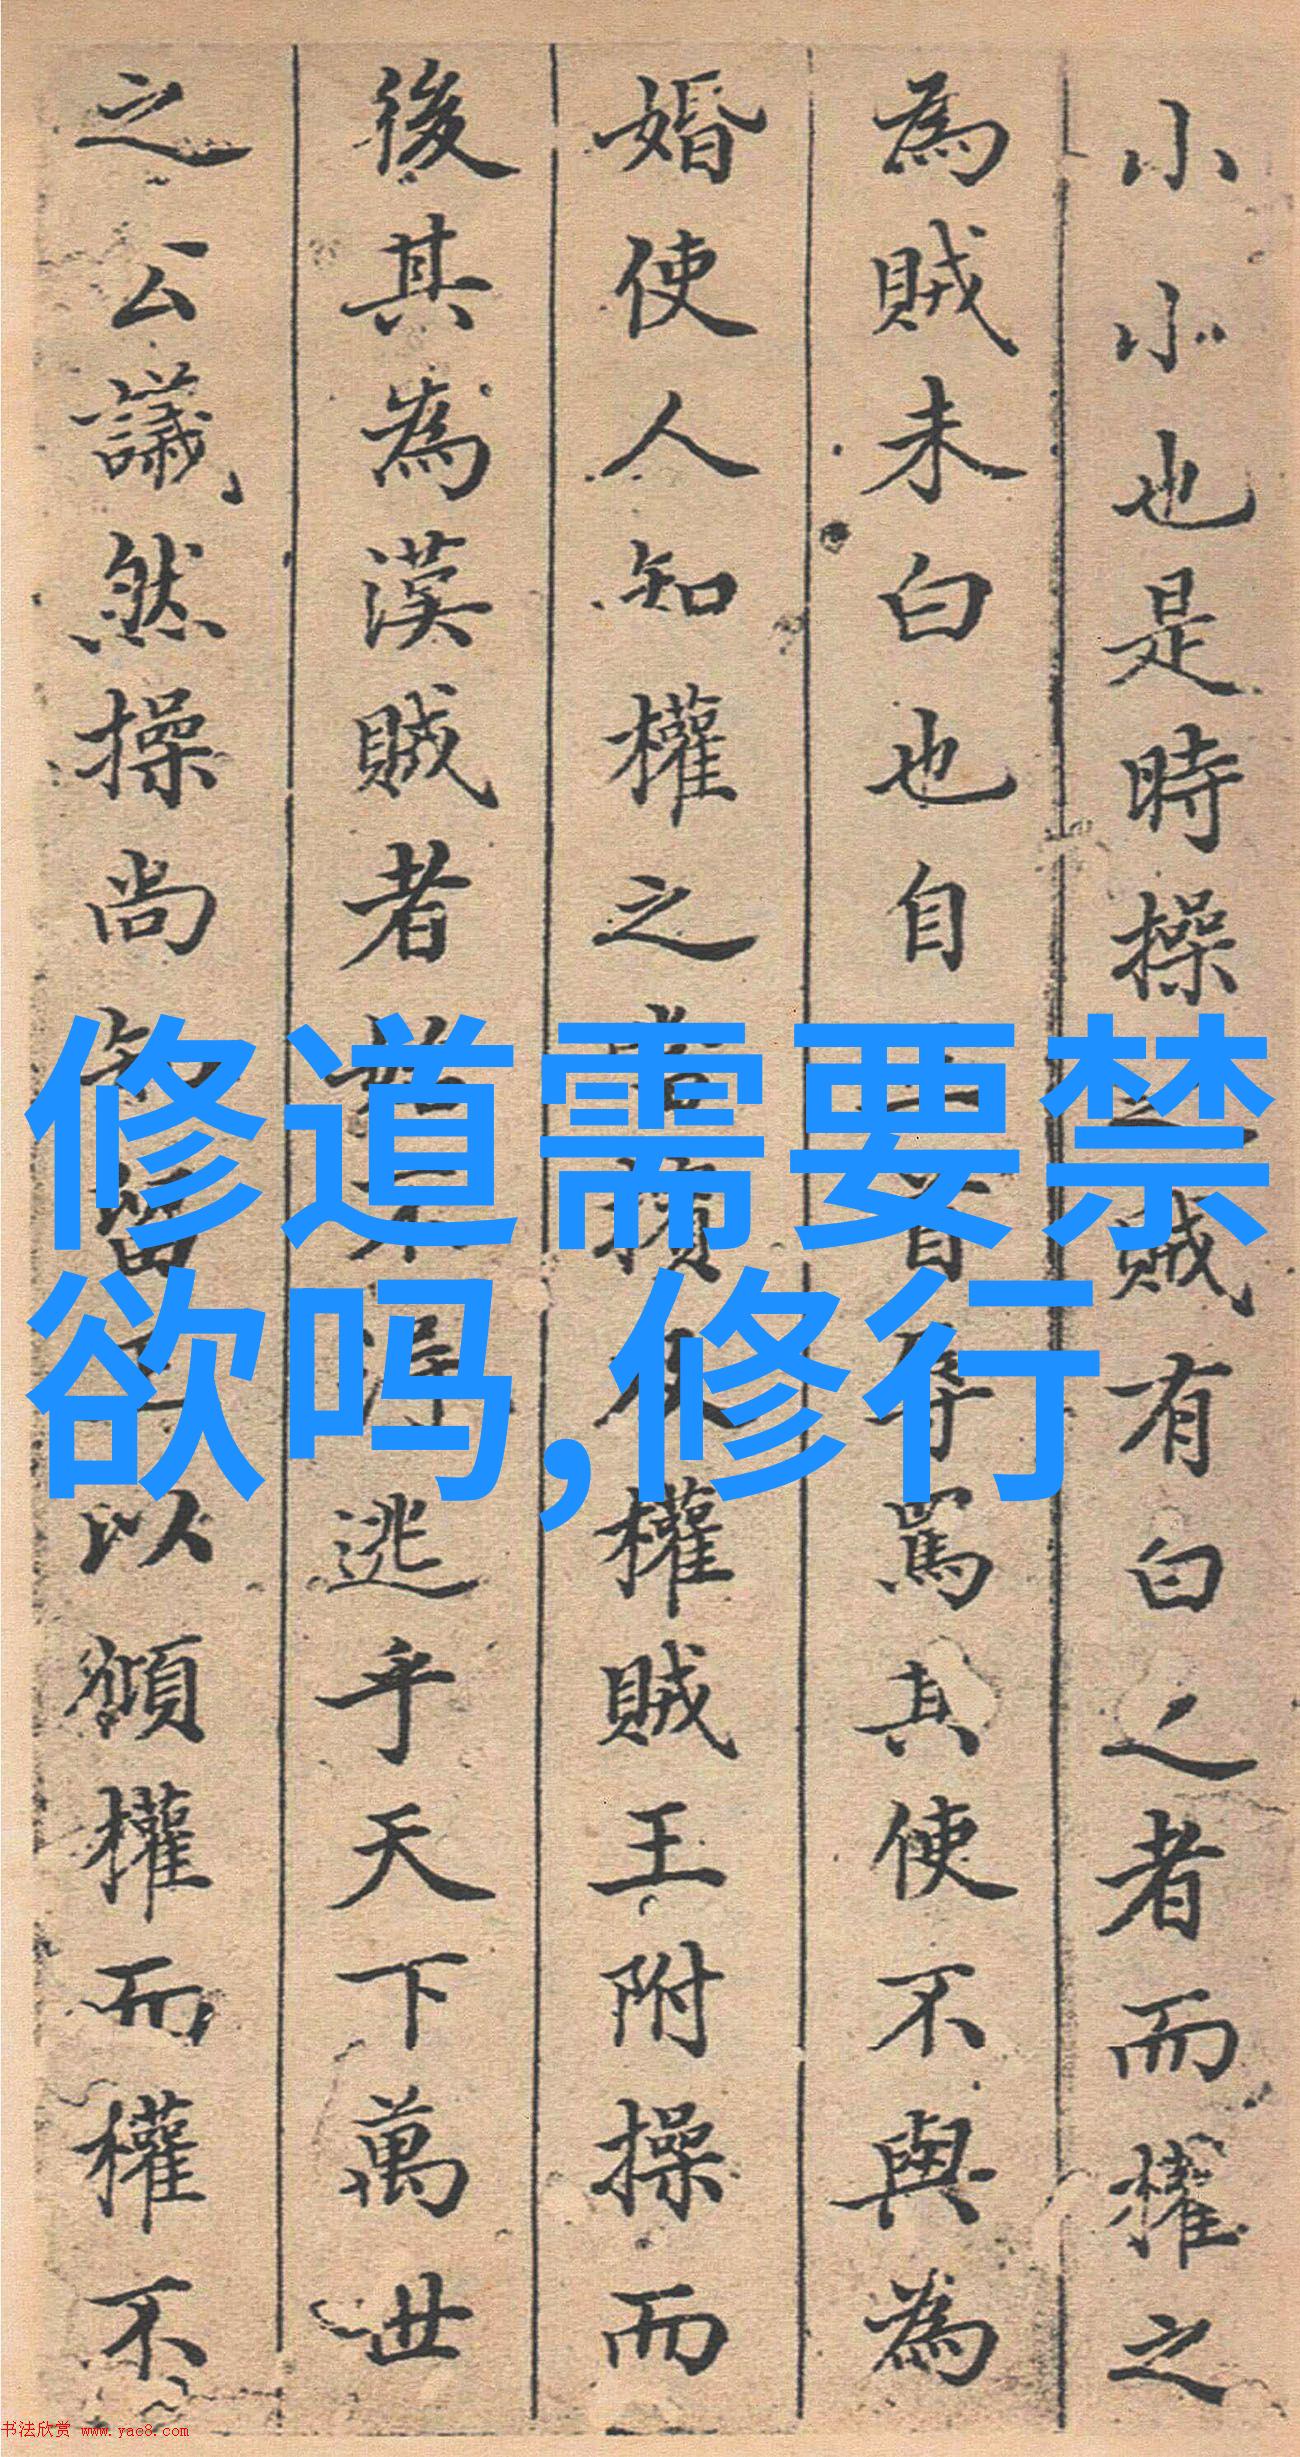 小小也是時操之賊有白之者而權之
為賊未白也自辱罵其使不與為
婚使人知權之權賊王附操而
後其為漢賊者不得逃乎天下萬世
之公議然操尚以權而權不
修道需要禁
欲吗,修行
书法欣赏 www.yac8.com